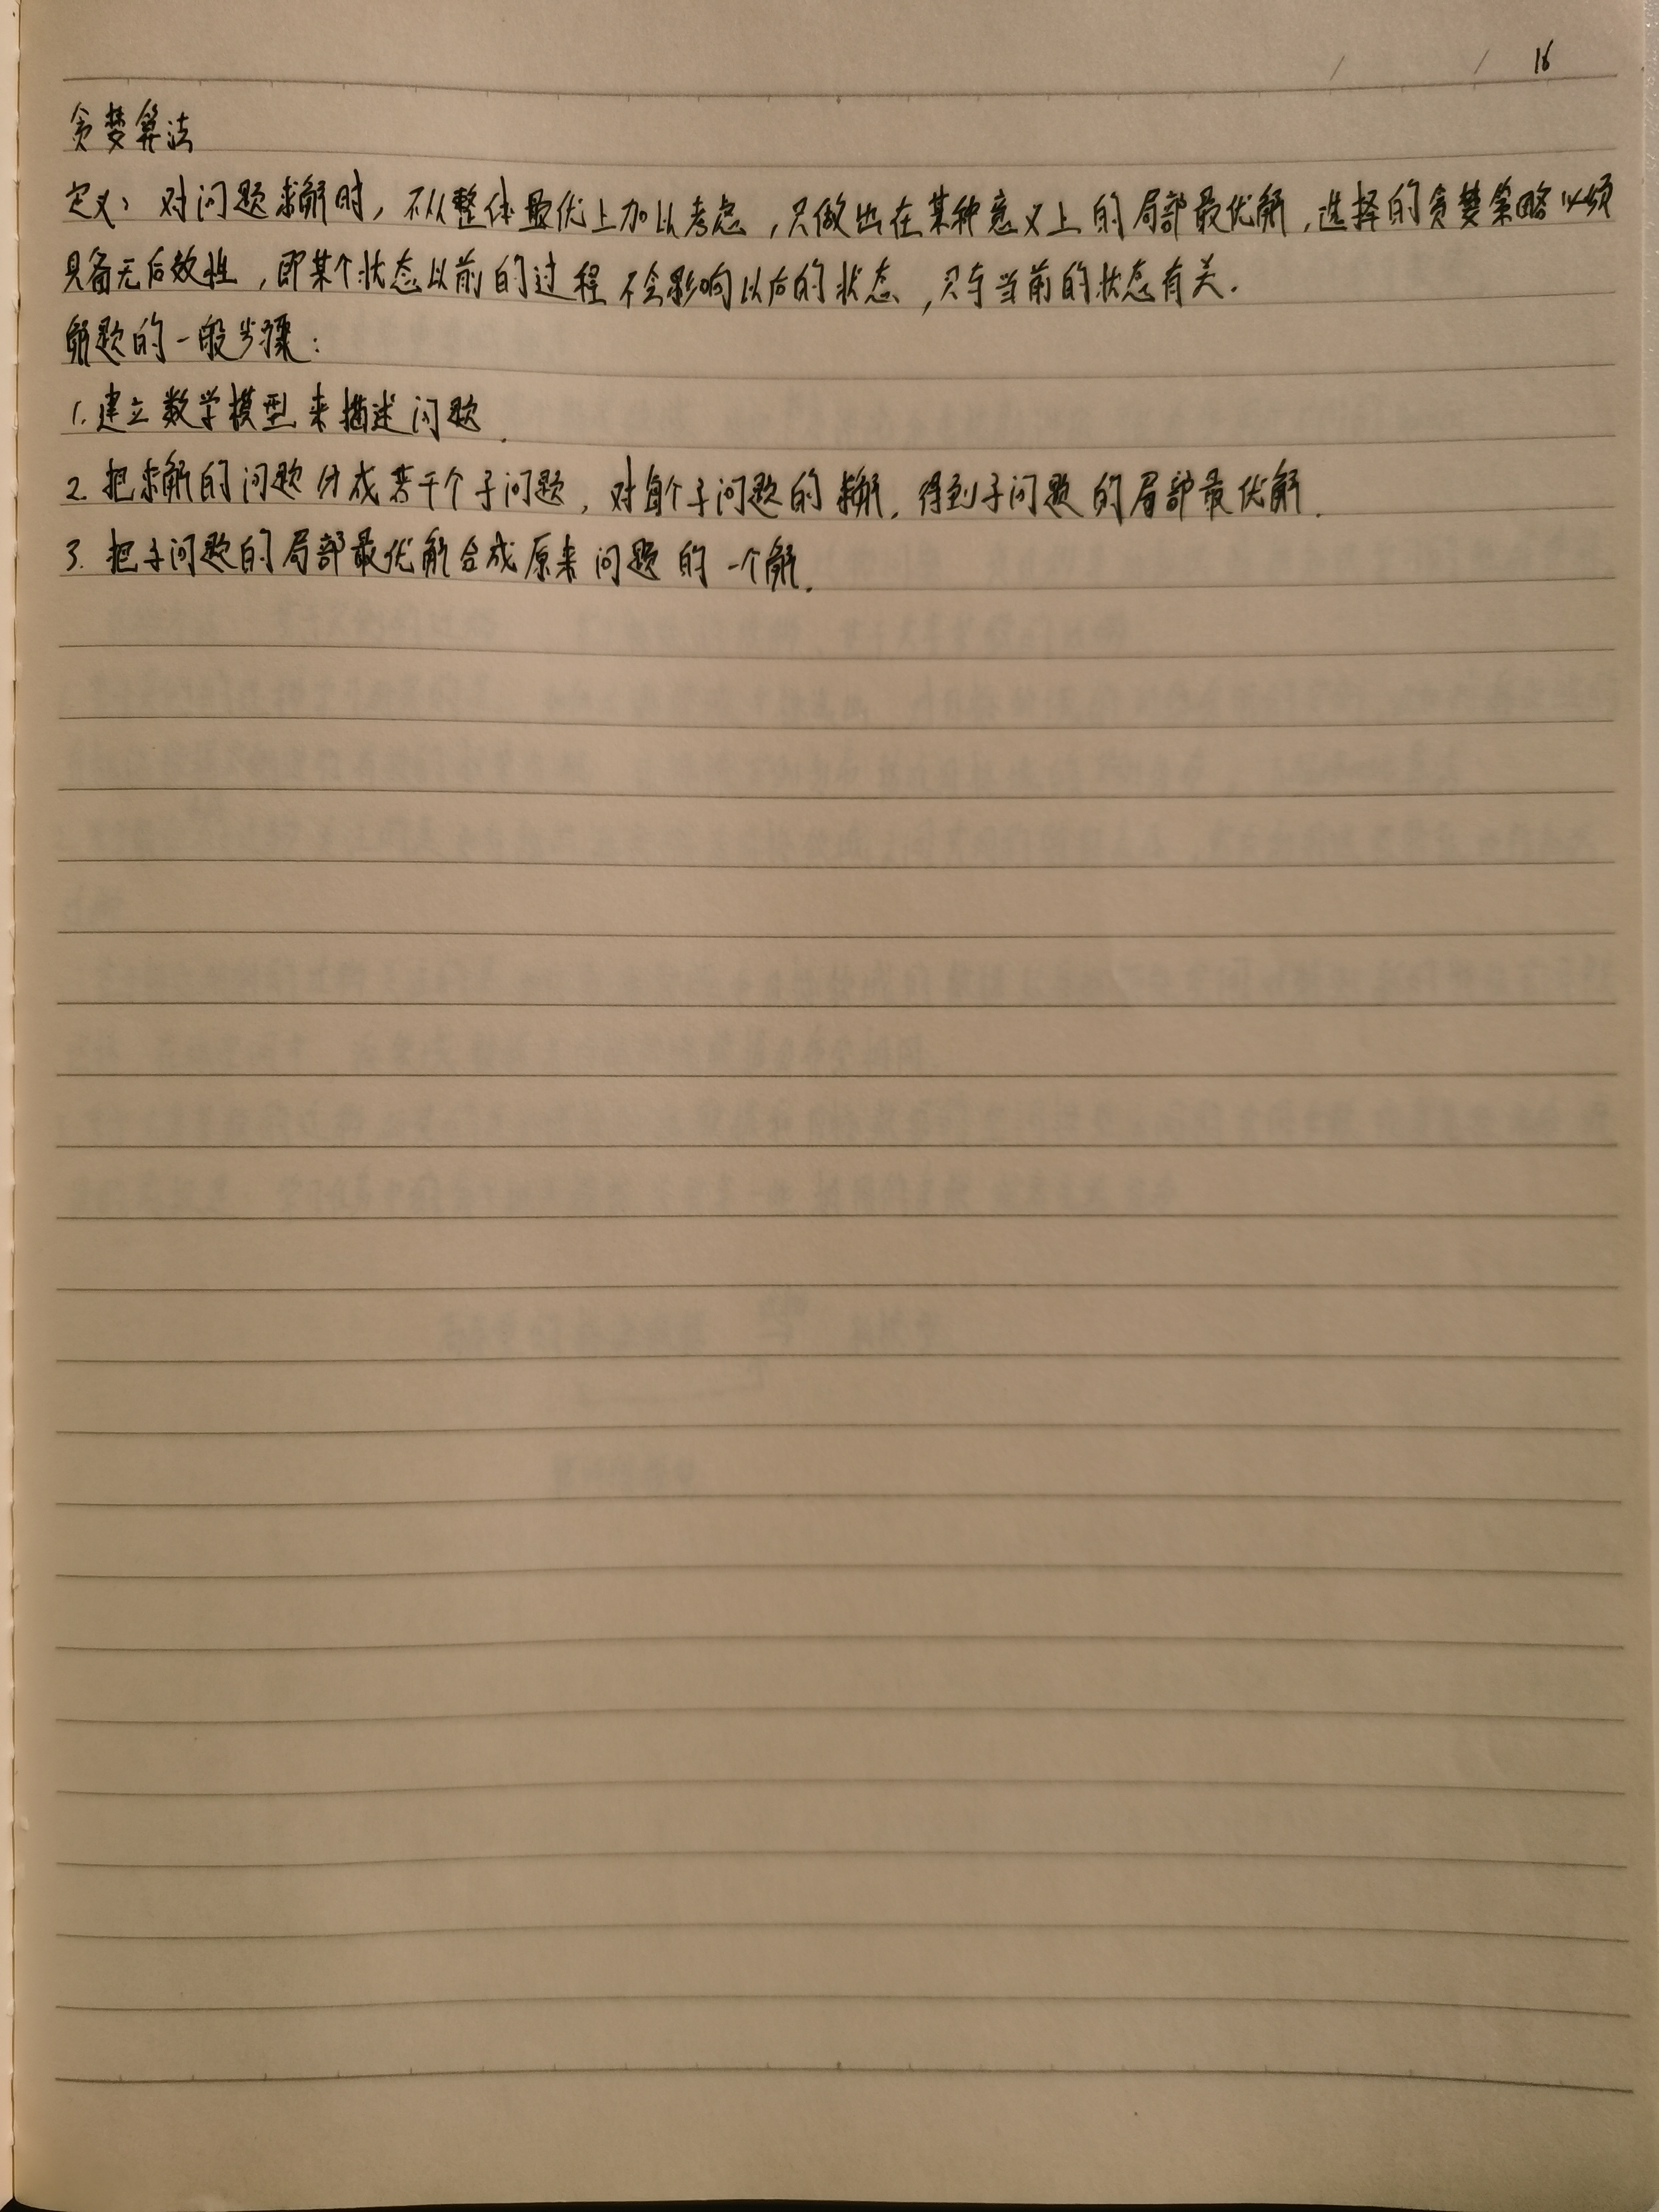 16
贪婪算法
定义：对问题求解时，不从整体最优上加以考虑，只做出在某种意义上的局部最优解，选择的贪婪策略必须
具备无后效性，即某个状态以前的过程不会影响以后的状态，只与当前的状态有关.
解题的一般步骤：
1.建立数学模型来描述问题.
2.把求解的问题分成若干个子问题，对每个子问题的求解，得到子问题的局部最优解.
3.把子问题的局部最优解合成原来问题的一个解.